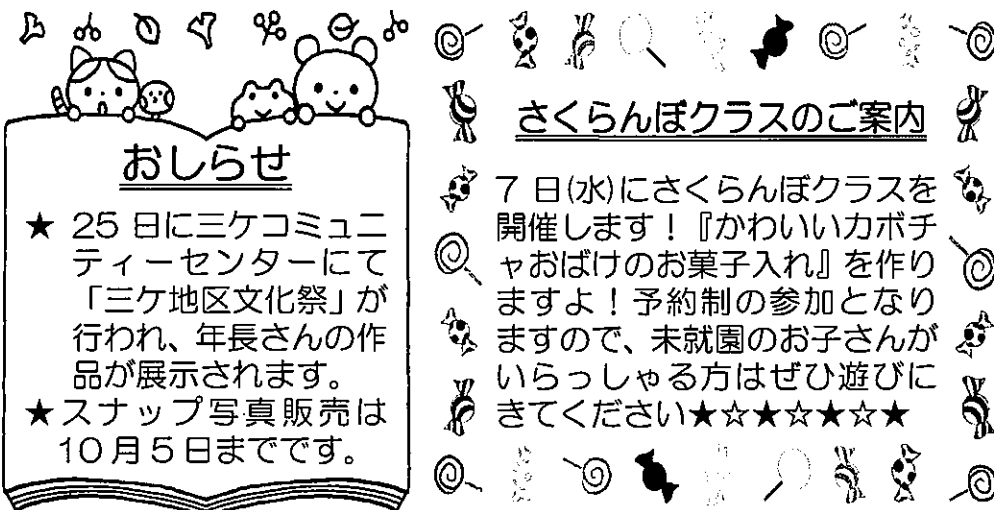 おしらせ
★ 25日に三ケコミュニ
ティーセンターにて
「三ケ地区文化祭」が
行われ、年長さんの作
品が展示されます。
★スナップ写真販売は
10月5日までです。
さくらんぼクラスのご案内
7日(水)にさくらんぼクラスを
開催します！『かわいいカボチ
ャおばけのお菓子入れ』を作り
ますよ！予約制の参加となり
ますので、未就園のお子さんが
いらっしゃる方はぜひ遊びに
きてください★☆★☆★☆★